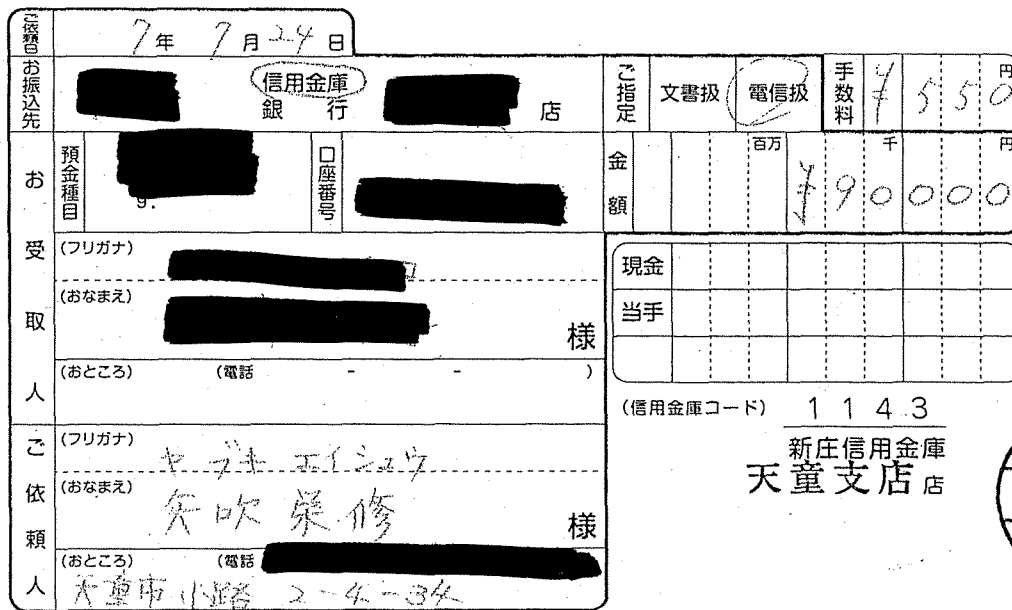 ご依頼日 7年 7月24日
お振込先 信用金庫 銀行 店
ご指定 文書扱 電信扱 手数料 ¥550円
預金種目 9. 口座番号
金額 百万 千 円 ¥90000
お受取人
(フリガナ)
(おなまえ) 様
(おところ) (電話 - - )
現金
当手
(信用金庫コード) 1143
新庄信用金庫
天童支店 店
ご依頼人
(フリガナ) ヤブキ エイシュウ
(おなまえ) 矢吹 栄修 様
(おところ) (電話
天童市小路 2-4-34